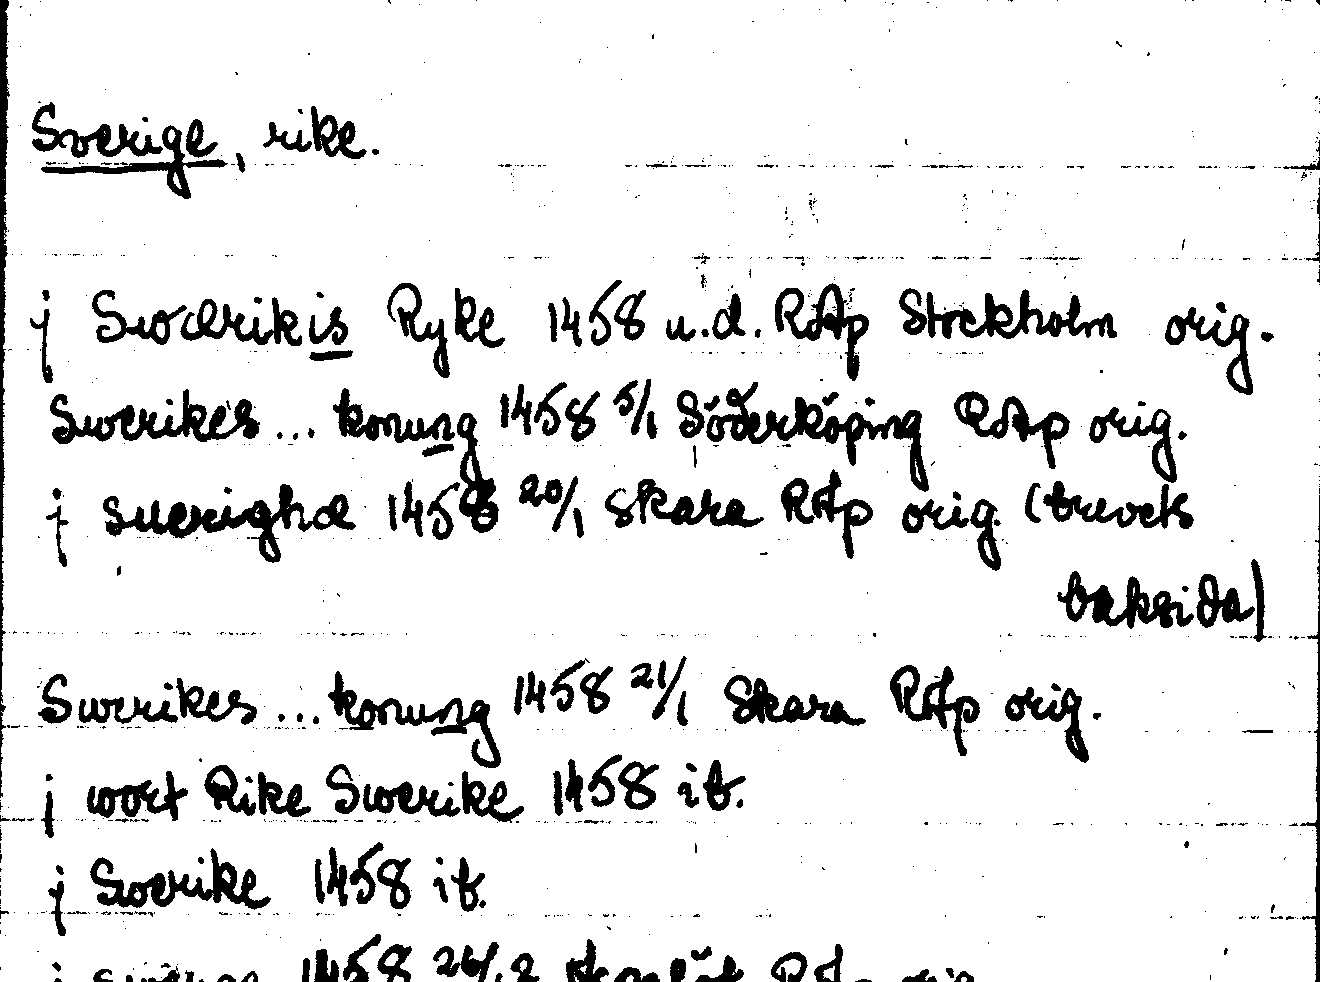 Sverige, rike.
j Swærikis Ryke 1458 u.d. RAp Stockholm orig.
Swerikes ... konung 1458 5/1 Söderköping RAp orig.
j suerighæ 1458 20/1 Skara RAp orig. (brevets
baksida)
Swerikes ... konung 1458 21/1 Skara RAp orig.
j wort Rike Swerike 1458 ib.
j Swerike 1458 ib.
j 1458 26/2 RAp orig